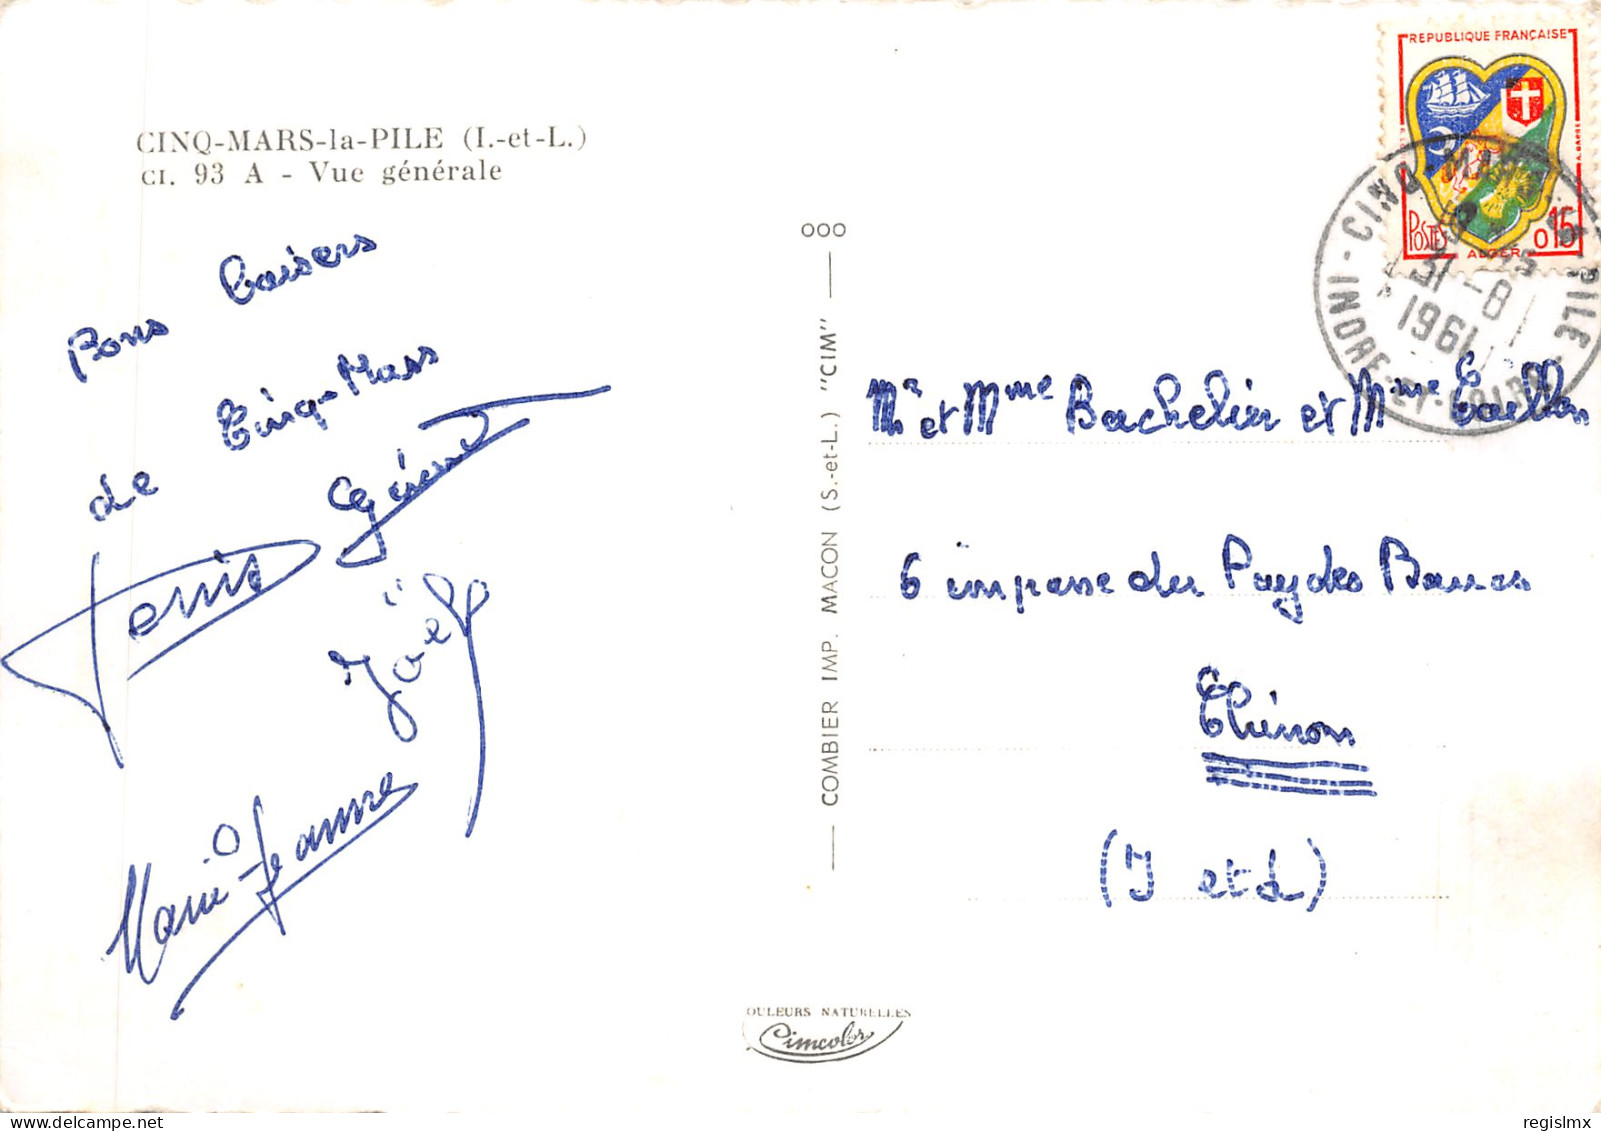 CINQ-MARS-la-PILE (I.-et-L.)
CI. 93 A - Vue générale
Bons baisers
de Cinq-Mars
Gérard
Denis
Joël
Marie Jeanne
COMBIER IMP. MACON (S.-et-L.) "CIM"
OULEURS NATURELLES
Cimcolor
REPUBLIQUE FRANÇAISE
POSTES
0 15
ALGER
CINQ-MARS-LA-PILE
31-8
1961
INDRE-ET-LOIRE
Mr et Mme Bachelier et Mme
6 impasse du Pay des Bancs
Chinon
(I et L)
regislmx